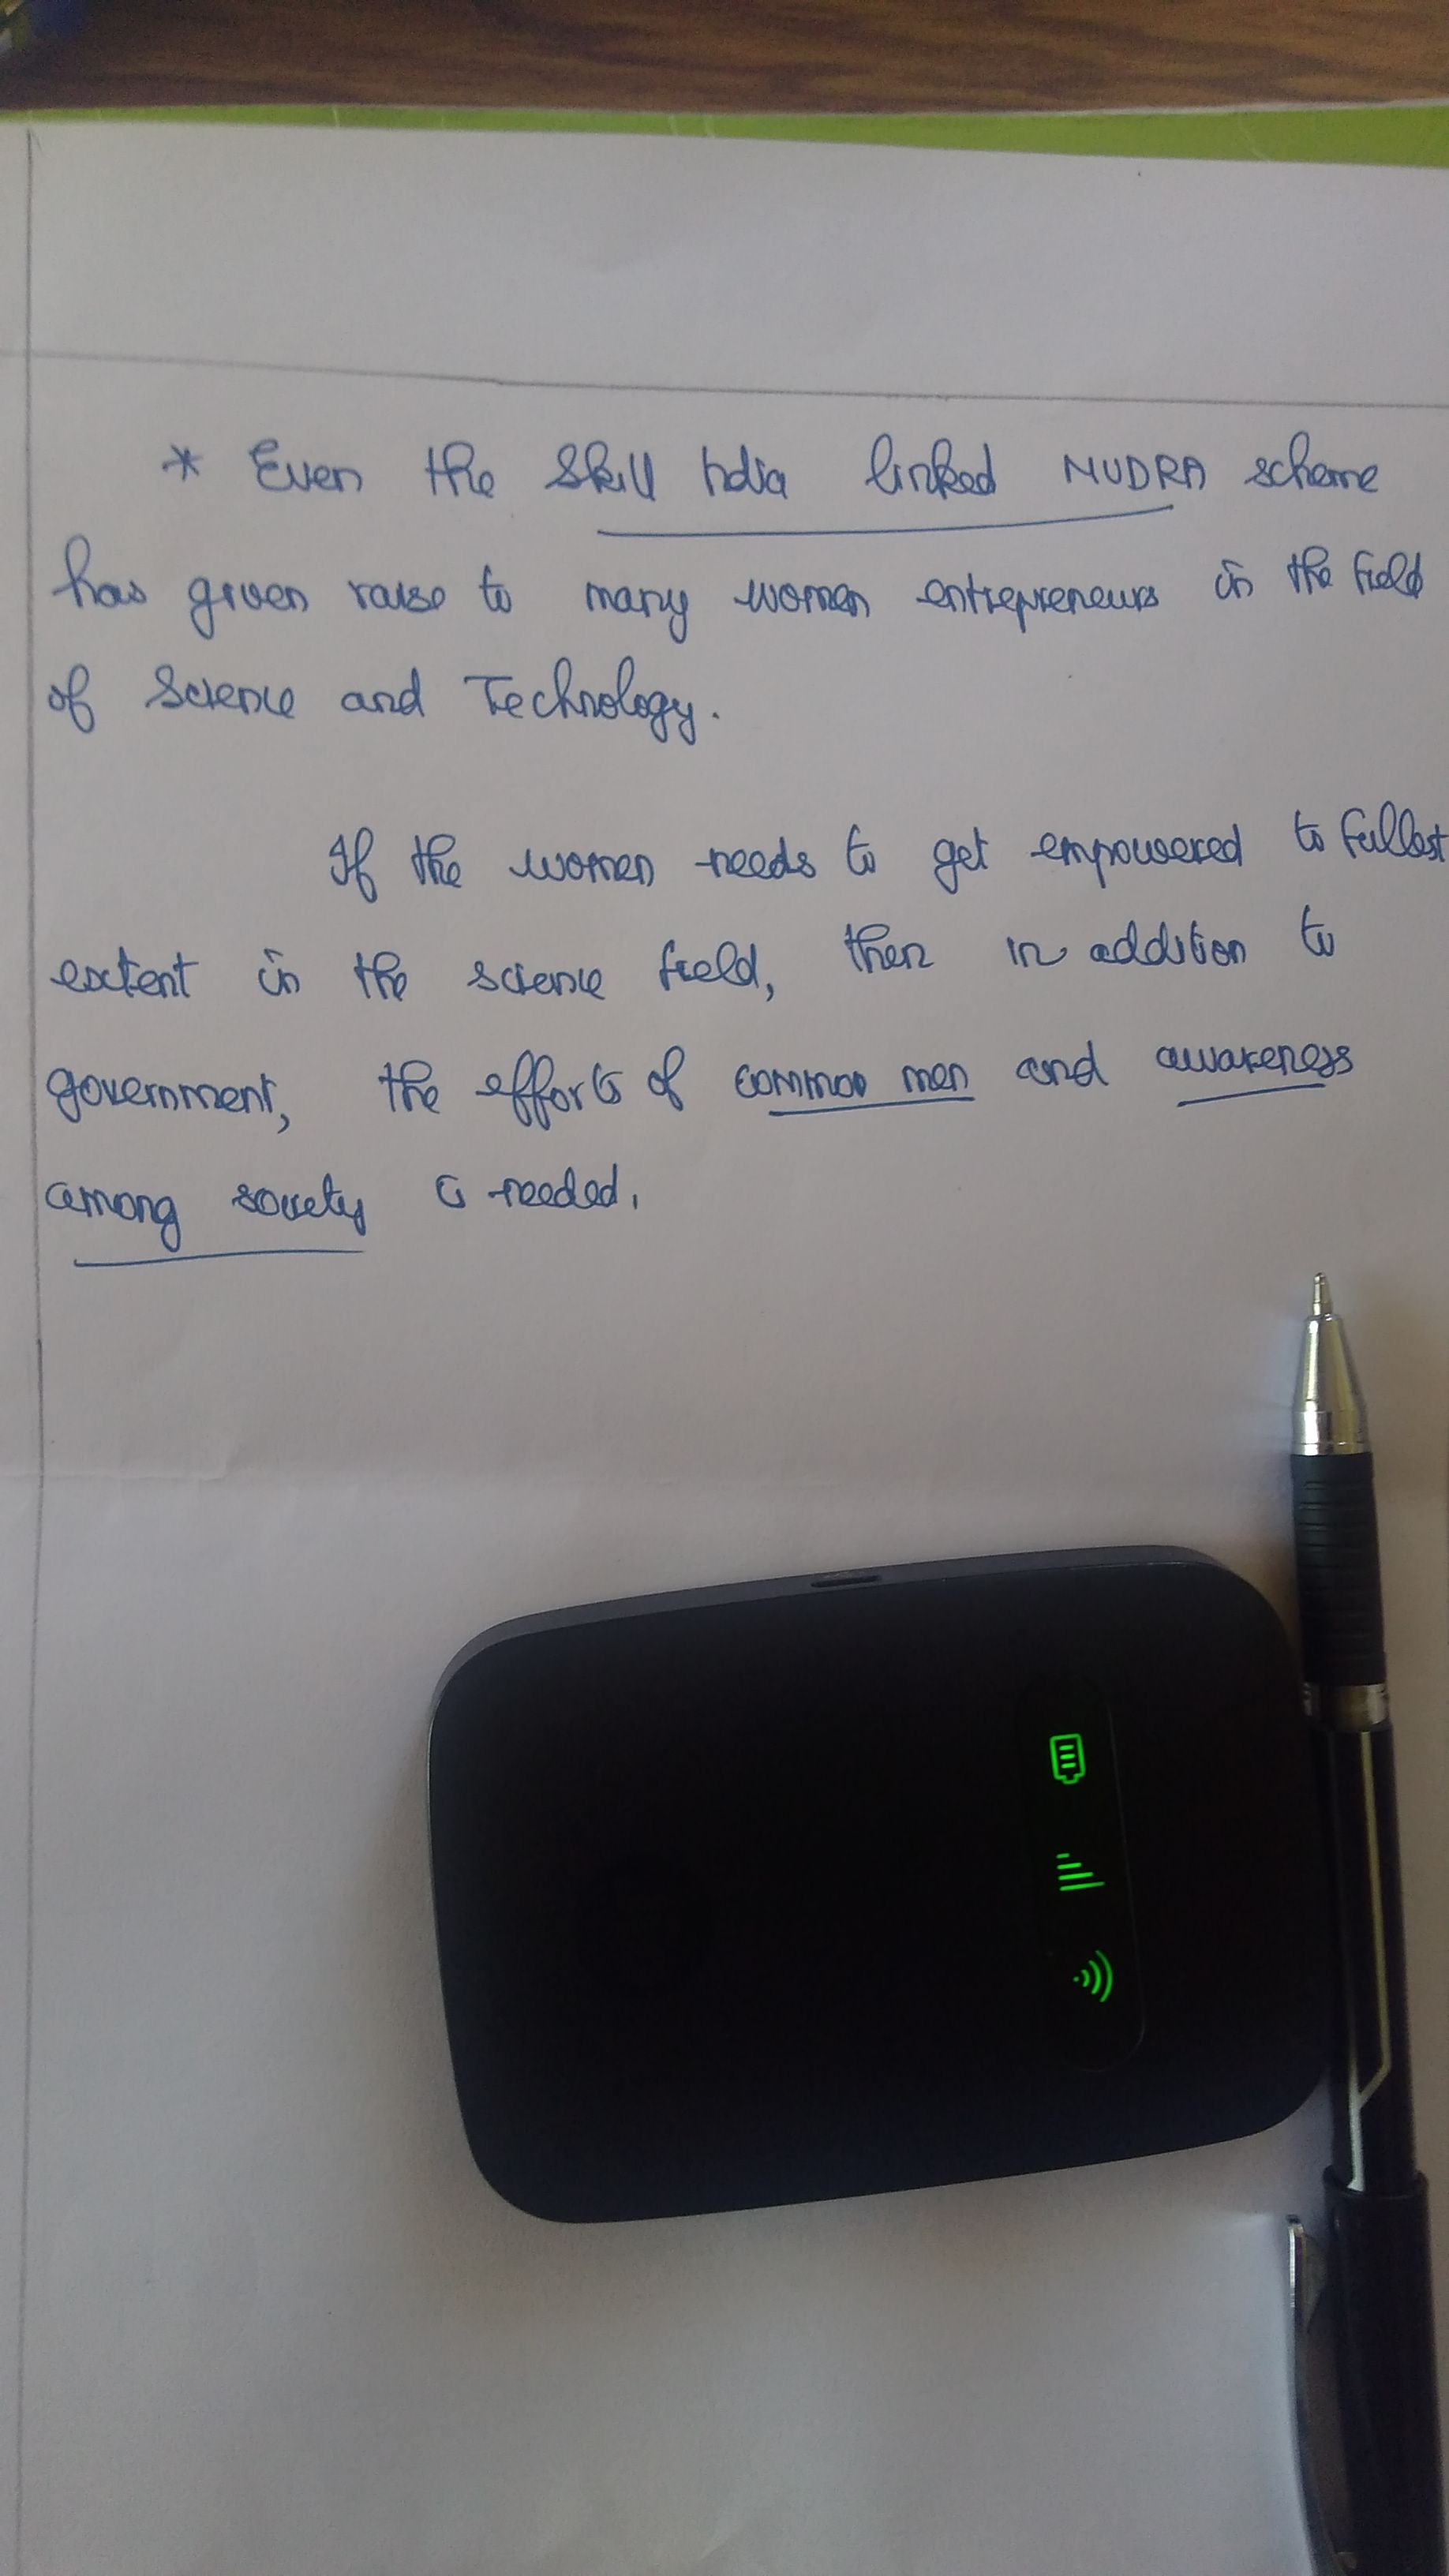 * Even the Skill India linked MUDRA scheme
has given raise to many women entrepreneurs in the field
of Science and Technology.
If the women needs to get empowered to fullest
extent in the science field, then in addition to
government, the efforts of common men and awareness
among society is needed.